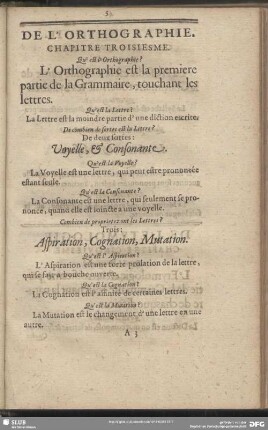 5.
DE L'ORTHOGRAPHIE.
CHAPITRE TROISIESME.
Qu'est l'Orthographie?
L'Orthographie est la premiere
partie de la Grammaire, touchant les
lettres.
Qu'est la Lettre?
La Lettre est la moindre partie d'une diction escrite.
De combien de sortes est la Lettre?
De deux sortes:
Voyelle, & Consonante.
Qu'est la Voyelle?
La Voyelle est une lettre, qui peut estre prononcée
estant seule.
Qu'est la Consonante?
La Consonante est une lettre, qui seulement se pro-
nonce, quand elle est joincte a une voyelle.
Combien de proprietez ont les Lettres?
Trois:
Aspiration, Cognation, Mutation.
Qu'est l'Aspiration?
L'Aspiration est une forte prolation de la lettre,
qui se fait a bouche ouverte.
Qu'est la Cognation?
La Cognation est l'afinité de certaines lettres.
Qu'est la Mutation?
La Mutation est le changement d'une lettre en une
autre.
A 3
SLUB
DFG